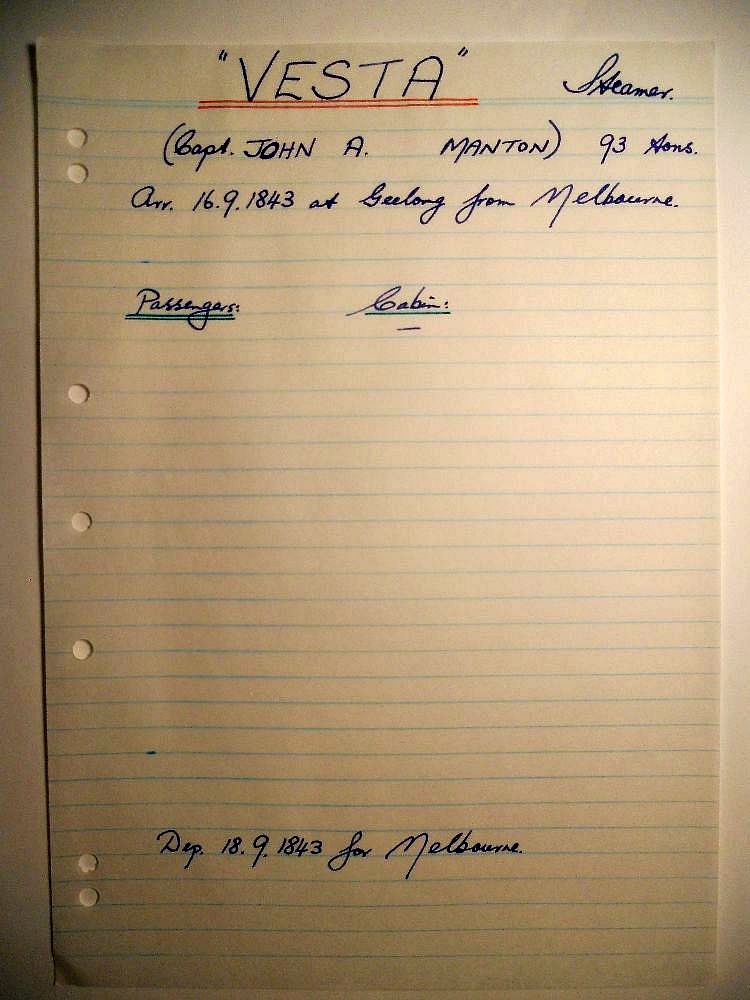 "VESTA" Steamer.
(Capt. JOHN A. MANTON) 93 tons.
Arr. 16.9.1843 at Geelong from Melbourne.
Passengers: Cabin:
—
Dep. 18.9.1843 for Melbourne.